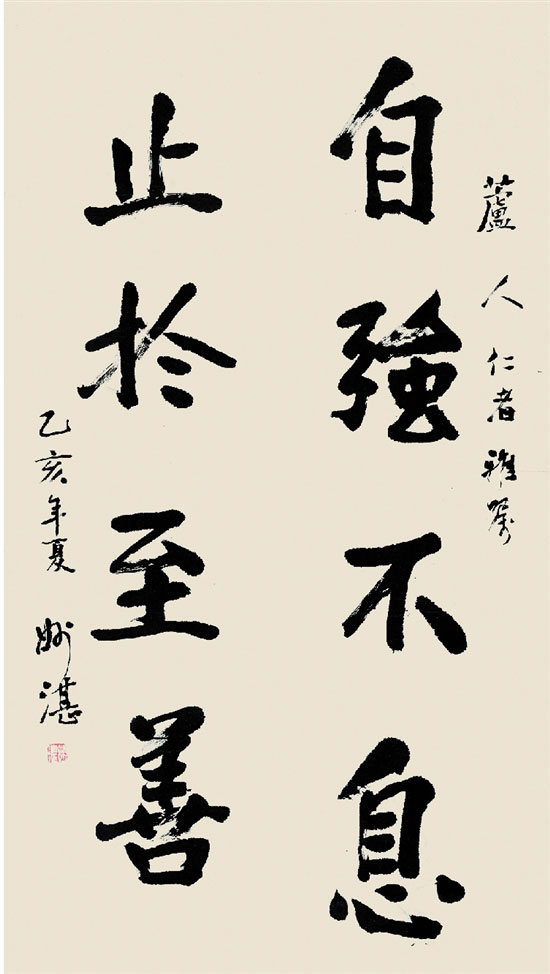 蘆人仁者雅嘱
自強不息
止於至善
乙亥年夏 湛